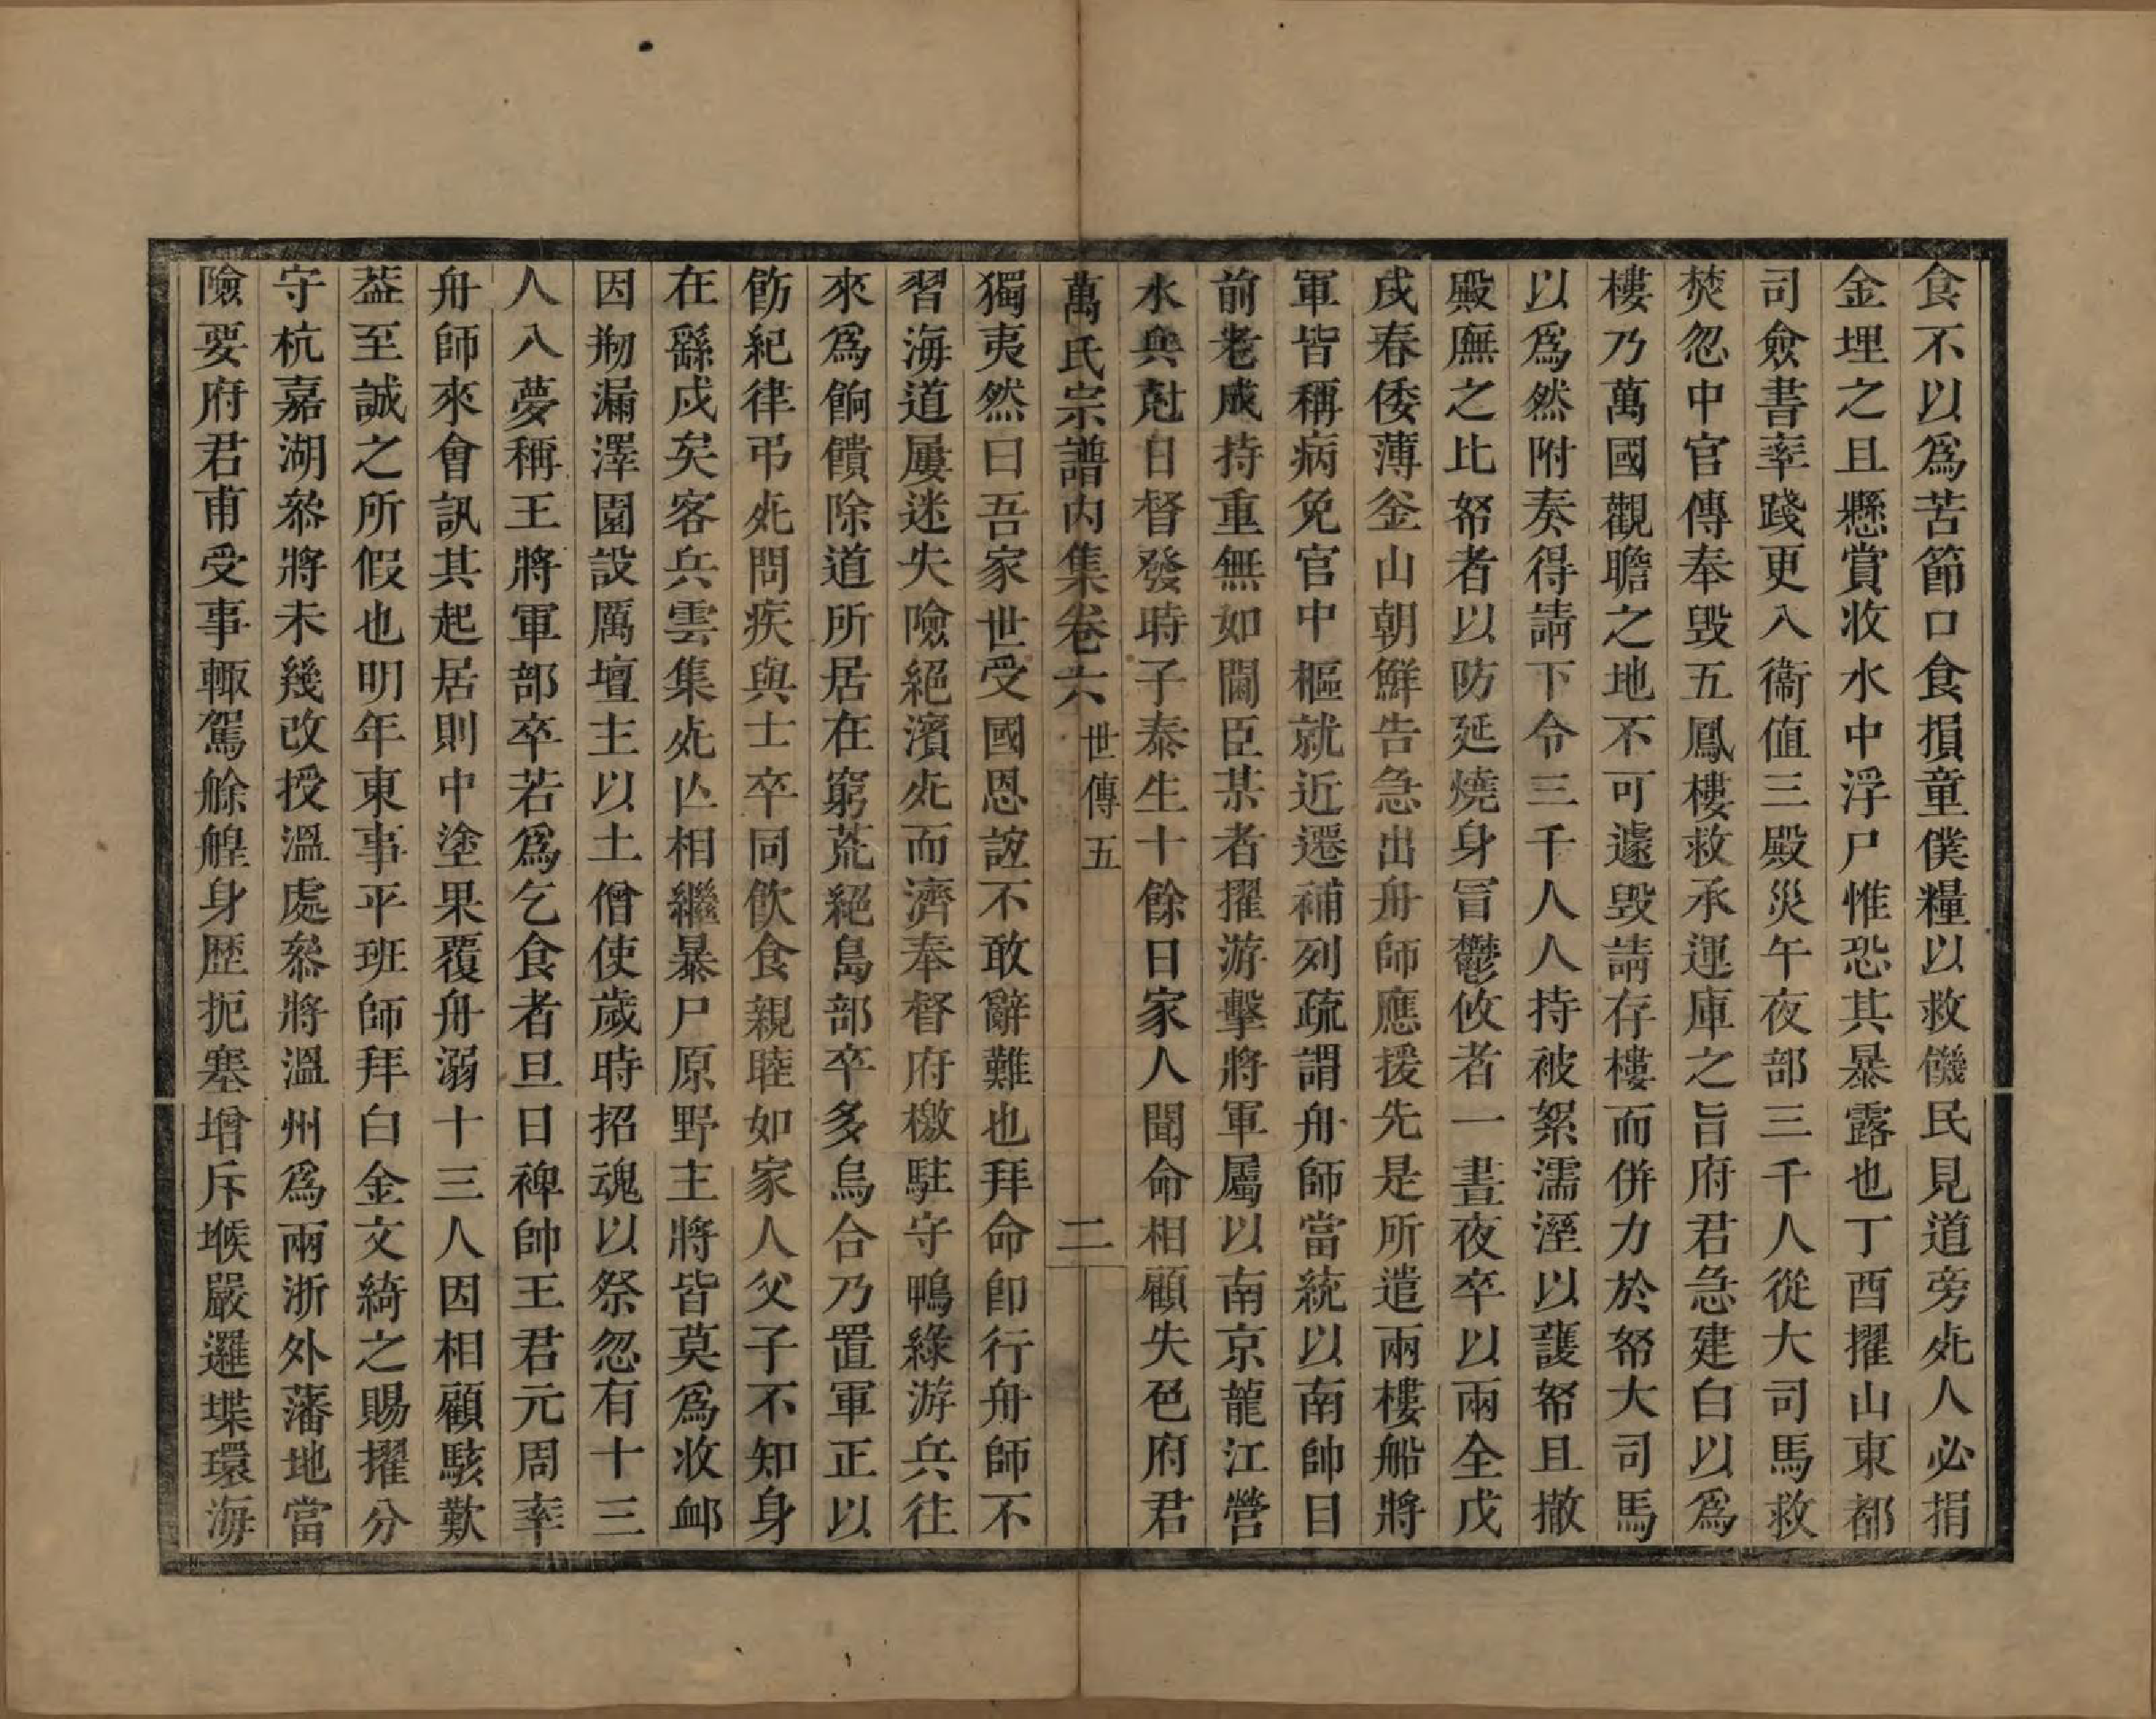 食不以爲苦節口食損童僕糧以救饑民見道旁死人必捐
金埋之且懸賞收水中浮尸惟恐其暴露也丁酉擢山東都
司僉書率踐更入衞值三殿災午夜部三千人從大司馬救
焚忽中官傳奉毁五鳳樓救承運庫之旨府君急建白以爲
樓乃萬國觀瞻之地不可遽毁請存樓而併力於帑大司馬
以爲然附奏得請下令三千人人持被絮濡溼以護帑且撤
殿廡之比帑者以防延燒身冒鬱攸者一晝夜卒以兩全戊
戌春倭薄釜山朝鮮告急出舟師應援先是所遣兩樓船將
軍皆稱病免官中樞就近遷補列疏謂舟師當統以南帥目
前老成持重無如閫臣某者擢游擊將軍屬以南京龍江營
水兵尅日督發時子泰生十餘日家人聞命相顧失色府君
萬氏宗譜內集卷六 世傳五 二
獨夷然曰吾家世受國恩誼不敢辭難也拜命卽行舟師不
習海道屢迷失險絕濱死而濟奉督府檄駐守鴨綠游兵往
來爲餉饋除道所居在窮荒絕島部卒多烏合乃置軍正以
飭紀律弔死問疾與士卒同飮食親睦如家人父子不知身
在繇戍矣客兵雲集死亾相繼暴尸原野主將皆莫爲收卹
因刱漏澤園設厲壇主以土僧使歲時招魂以祭忽有十三
人入夢稱王將軍部卒若爲乞食者旦日裨帥王君元周率
舟師來會訊其起居則中塗果覆舟溺十三人因相顧駭歎
葢至誠之所假也明年東事平班師拜白金文綺之賜擢分
守杭嘉湖叅將未幾改授溫處叅將溫州爲兩浙外藩地當
險要府君甫受事輒駕艅艎身歷扼塞增斥堠嚴邏堞環海